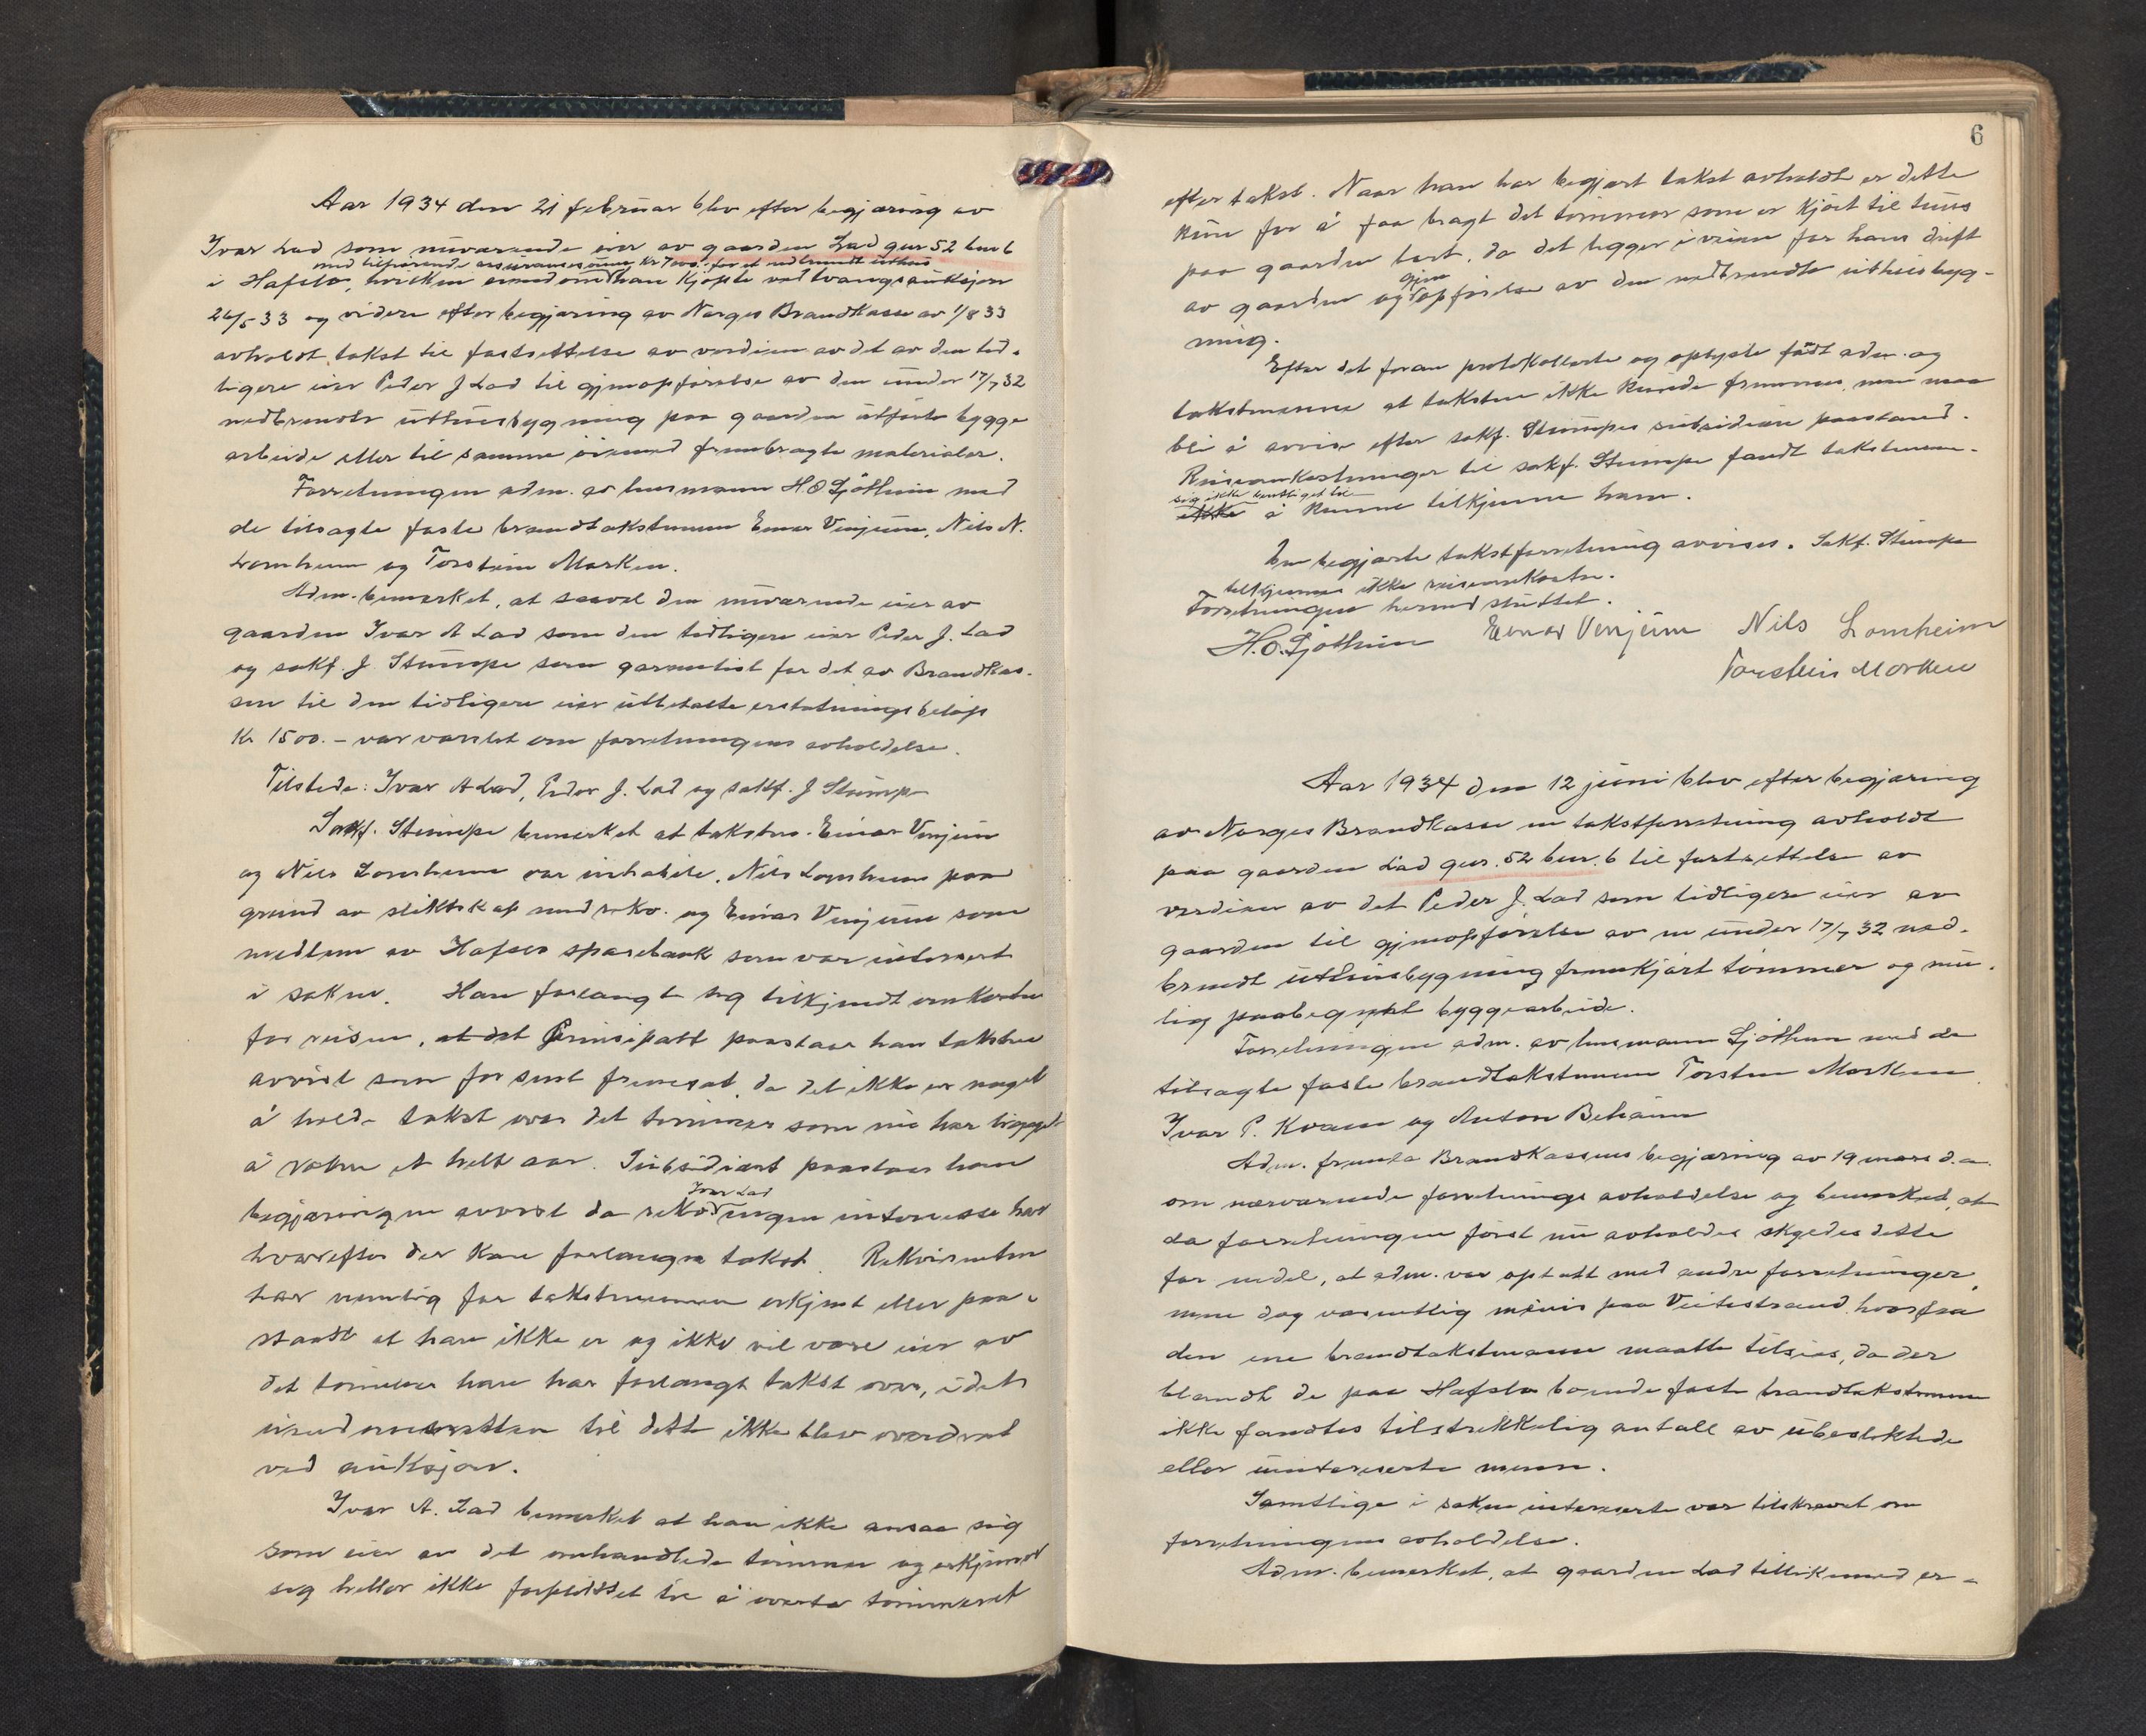 Aar 1934 den 21 februar blev efter begjæring av
Ivar Lad som nuværende eier av gaarden Lad gnr 52 bnr 6
med tilhørende assuransesum kr 7000 for et nedbrændt uthus
i Hafslo, hvilken eiendom han kjøpte ved tvangsauksjon
26/5 33 og videre efter begjæring av Norges Brandkasse av 1/8 33
avholdt takst til fastsettelse av verdien av det av den tid-
ligere eier Peder J Lad til gjenopførelse av den under 17/7 32
nedbrendte uthusbygning paa gaarden utførte bygge
arbeide eller til samme øiemed frembragte materialer.
Forretningen adm. av lensmann H O Ljøtheim med
de tilsagte faste brandtakstmenn Einar Venjum, Nils N.
Lomheim og Torstein Marken.
Adm. bemerket, at saavel den nuværende eier av
gaarden Ivar A Lad som den tidligere eier Peder J. Lad
og sakf. J. Stumpe som garantist for det av Brandkas-
sen til den tidligere eier utbetalte erstatningsbeløp
Kr 1500.- var varslet om forretningens avholdelse.
Tilstede: Ivar A Lad, Peder J. Lad og sakf. J Stumpe
Sakf. Stumpe bemerket at takstm. Einar Venjum
og Nils Lomheim var inhabile. Nils Lomheim paa
grund av slektskap med rekv. og Einar Venjum som
medlem av Hafslo sparebank som var interessert
i saken. Han forlangte sig tilkjendt omkostn
for reisen, at det Prinsipalt paastaar han taksten
avvist som for sent fremsat, da det ikke er noget
å holde takst over det tømmer som nu har ligget
å raatne et helt aar. Subsidiært paastaar han
Ivar Lad
begjæringen avvist da rekv. ingen interesse har
hvorefter der kan forlanges takst. Rekvirenten
har nemlig for takstmennene erkjent eller paa-
staatt at han ikke er og ikke vil være eier av
det tømmer han har forlangt takst over, idet
eiendomsretten til dette ikke blev overdratt
ved auksjon.
Ivar A. Lad bemerket at han ikke ansaa sig
som eier av det omhandlede tømmer og erkjente
sig heller ikke forpliktet til å overta tømmeret
6
efter takst. Naar han har begjært takst avholdt er dette
kun for å faa bragt det tømmer som er kjørt til tuns
paa gaarden bort, da det ligger i veien for hans drift
gjen
av gaarden og opførelse av den nedbrendte uthusbyg-
ning.
Efter det foran protokollerte og oplyste fandt adm. og
takstmennene at taksten ikke kunde fremmes, men maa
bli å avvise efter sakf. Stumpes subsidiære paastand.
Reiseomkostninger til sakf. Stumpe fandt takstmenn-
sig ikke berettiget til
ikke å kunne tilkjenne ham.
Den begjærte takstforretning avvises. Sakf. Stumpe
tilkjennes ikke reiseomkostn.
Forretningen hermed sluttet.
H.O. Ljøtheim Einar Venjum Nils Lomheim
Torstein Morken
Aar 1934 den 12 juni blev efter begjæring
av Norges Brandkasse en takstforretning avholdt
paa gaarden Lad gnr. 52 bnr. 6 til fastsettelse av
verdien av det Peder J. Lad som tidligere eier av
gaarden til gjenopførelse av en under 17/7 32 ned-
brendt uthusbygning fremkjørt tømmer og mu-
lig paabegynt byggearbeide.
Forretningen adm. av lensmann Ljøtheim med de
tilsagte faste brandtakstmenn Torstein Marken
Ivar P. Kvam og Anton Beheim
Adm. fremla Brandkassens begjæring av 19 mars d.a.
om nærværende forretnings avholdelse og bemerket, at
da forretningen først nu avholdes skyldes dette
for endel, at adm. var optatt med andre forretninger,
men dog væsentlig menis paa Veitestrand hvorfra
den ene brandtakstmann maatte tilsies, da der
blandt de paa Hafslo boende faste brandtakstmenn
ikke fandtes tilstrekkelig antall av ubeslektede
eller uinteresserte menn.
Samtlige i saken interesserte var tilskrevet om
forretningens avholdelse.
Adm. bemerket, at gaarden Lad tillikemed er-